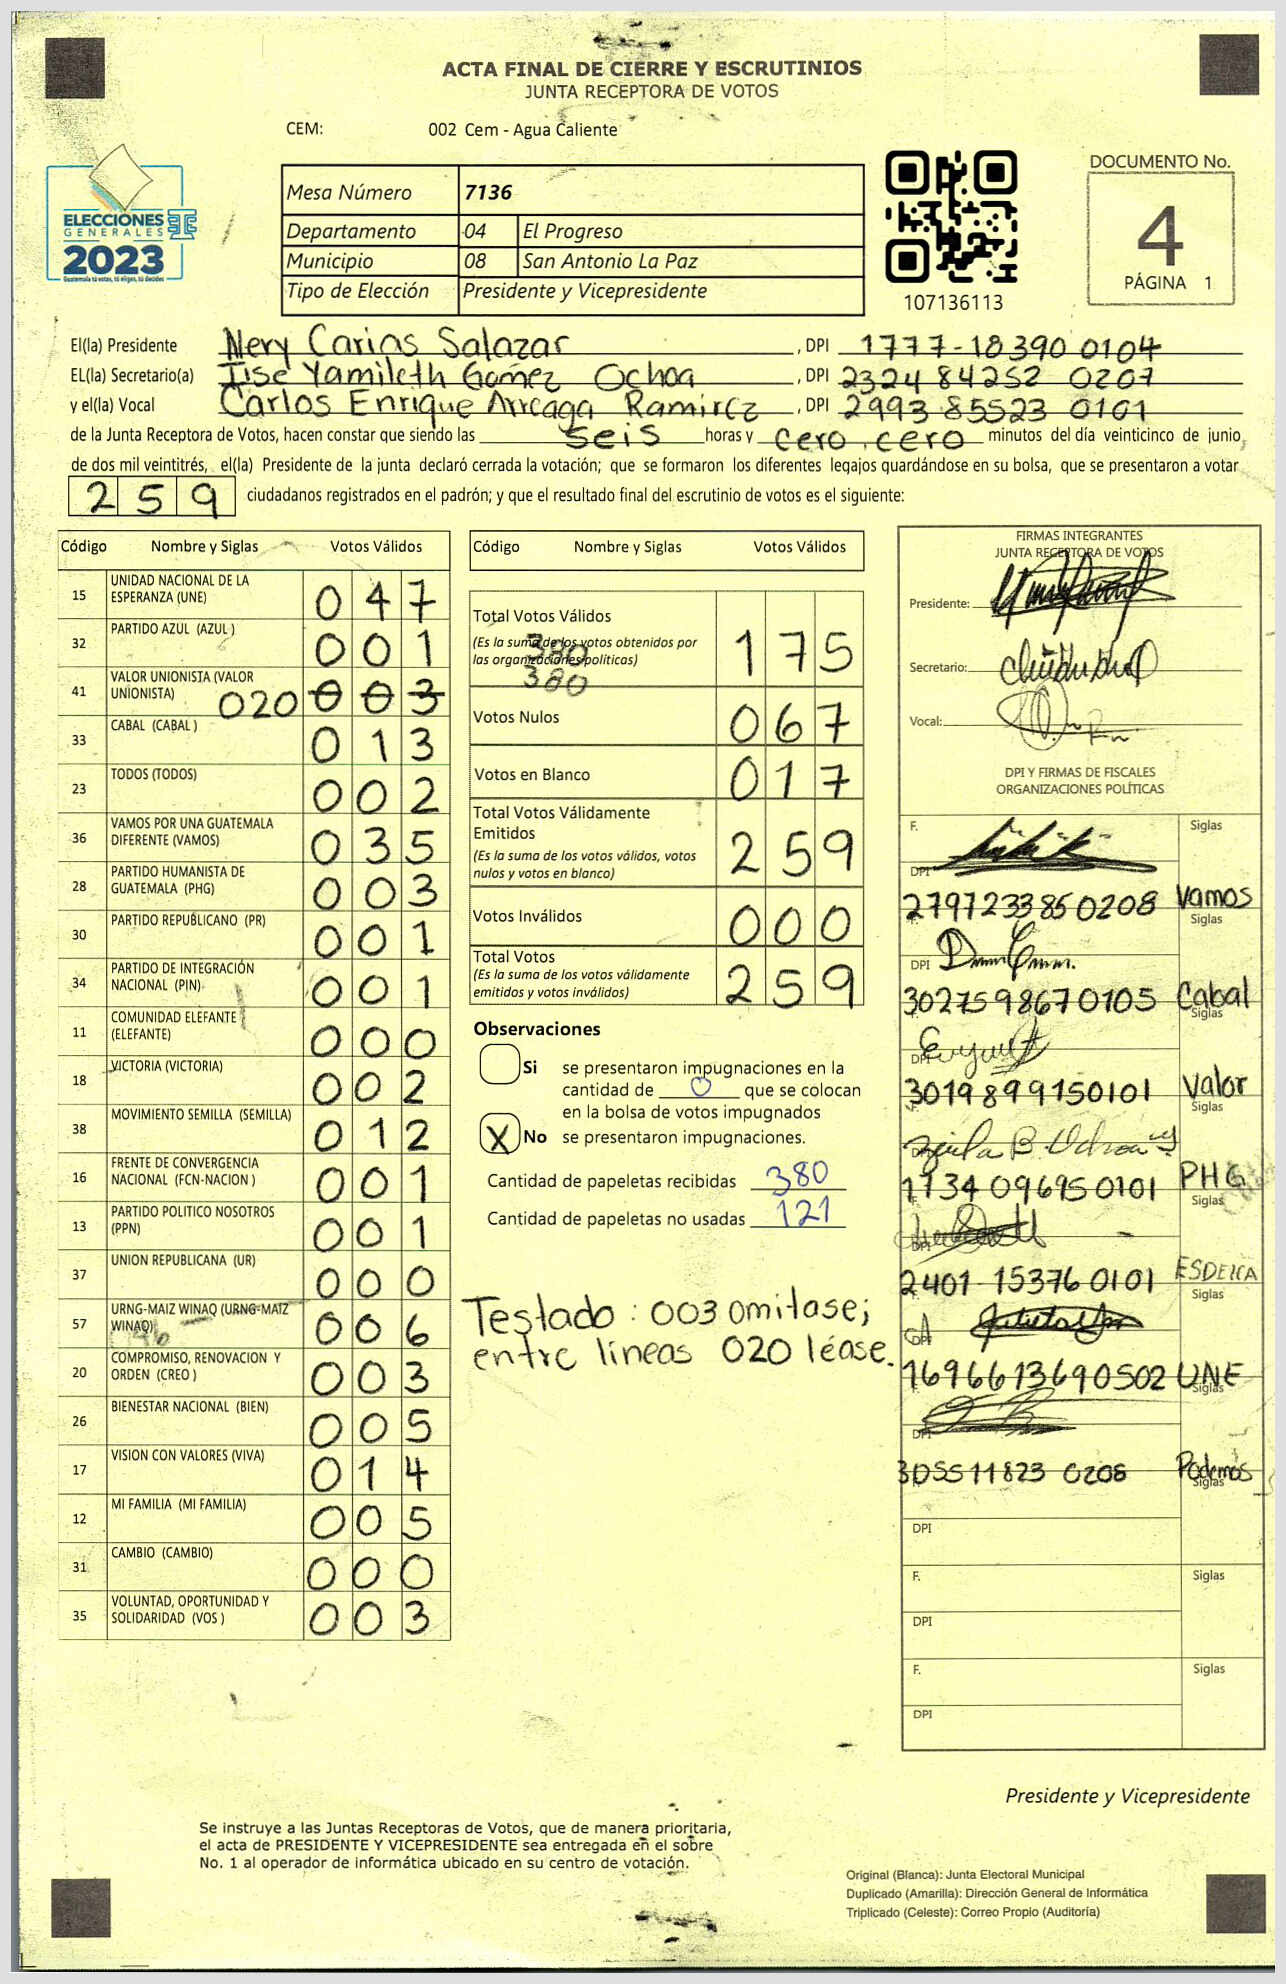 ACTA FINAL DE CIERRE Y ESCRUTINIOS
JUNTA RECEPTORA DE VOTOS
CEM: 002 Cem - Agua Caliente
ELECCIONES
GENERALES
2023
Guatemala tú votas, tú eliges, tú decides
Mesa Número 7136
Departamento 04 El Progreso
Municipio 08 San Antonio La Paz
Tipo de Elección Presidente y Vicepresidente
107136113
DOCUMENTO No.
4
PÁGINA 1
El(la) Presidente Nery Carias Salazar , DPI 1777-18390 0104
EL(la) Secretario(a) Ilse Yamileth Gomez Ochoa , DPI 2324 84252 0207
y el(la) Vocal Carlos Enrique Arreaga Ramirez , DPI 2993 85523 0101
de la Junta Receptora de Votos, hacen constar que siendo las seis horas y cero cero minutos del día veinticinco de junio,
de dos mil veintitrés, el(la) Presidente de la junta declaró cerrada la votación; que se formaron los diferentes legajos quardándose en su bolsa, que se presentaron a votar
259 ciudadanos registrados en el padrón; y que el resultado final del escrutinio de votos es el siguiente:
Código Nombre y Siglas Votos Válidos
15 UNIDAD NACIONAL DE LA ESPERANZA (UNE) 047
32 PARTIDO AZUL (AZUL ) 001
41 VALOR UNIONISTA (VALOR UNIONISTA) 020 003
33 CABAL (CABAL ) 013
23 TODOS (TODOS) 002
36 VAMOS POR UNA GUATEMALA DIFERENTE (VAMOS) 035
28 PARTIDO HUMANISTA DE GUATEMALA (PHG) 003
30 PARTIDO REPUBLICANO (PR) 001
34 PARTIDO DE INTEGRACIÓN NACIONAL (PIN) 001
11 COMUNIDAD ELEFANTE (ELEFANTE) 000
18 VICTORIA (VICTORIA) 002
38 MOVIMIENTO SEMILLA (SEMILLA) 012
16 FRENTE DE CONVERGENCIA NACIONAL (FCN-NACION ) 001
13 PARTIDO POLITICO NOSOTROS (PPN) 001
37 UNION REPUBLICANA (UR) 000
57 URNG-MAIZ WINAQ (URNG-MAIZ WINAQ) 006
20 COMPROMISO, RENOVACION Y ORDEN (CREO ) 003
26 BIENESTAR NACIONAL (BIEN) 005
17 VISION CON VALORES (VIVA) 014
12 MI FAMILIA (MI FAMILIA) 005
31 CAMBIO (CAMBIO) 000
35 VOLUNTAD, OPORTUNIDAD Y SOLIDARIDAD (VOS ) 003
Código Nombre y Siglas Votos Válidos
Total Votos Válidos 175
(Es la suma de los votos obtenidos por
las organizaciones políticas)
380
380
Votos Nulos 067
Votos en Blanco 017
Total Votos Válidamente
Emitidos 259
(Es la suma de los votos válidos, votos
nulos y votos en blanco)
Votos Inválidos 000
Total Votos 259
(Es la suma de los votos válidamente
emitidos y votos inválidos)
Observaciones
Si se presentaron impugnaciones en la
cantidad de 0 que se colocan
en la bolsa de votos impugnados
X No se presentaron impugnaciones.
Cantidad de papeletas recibidas 380
Cantidad de papeletas no usadas 121
Testado: 003 omitase;
entre lineas 020 léase.
FIRMAS INTEGRANTES
JUNTA RECEPTORA DE VOTOS
Presidente:
Secretario:
Vocal:
DPI Y FIRMAS DE FISCALES
ORGANIZACIONES POLÍTICAS
F. Siglas
DPI 2797233850208 Vamos
Siglas
DPI 3027598670105 Cabal
Siglas
DPI 3019899150101 Valor
Siglas
1734 096950101 PHG
Siglas
DPI 2401-15376 0101
Siglas
DPI 1696613690502 UNE
Siglas
DPI 305511823 0206 Podemos
Siglas
DPI
F. Siglas
DPI
F. Siglas
DPI
Presidente y Vicepresidente
Se instruye a las Juntas Receptoras de Votos, que de manera prioritaria,
el acta de PRESIDENTE Y VICEPRESIDENTE sea entregada en el sobre
No. 1 al operador de informática ubicado en su centro de votación.
Original (Blanca): Junta Electoral Municipal
Duplicado (Amarilla): Dirección General de Informática
Triplicado (Celeste): Correo Propio (Auditoría)